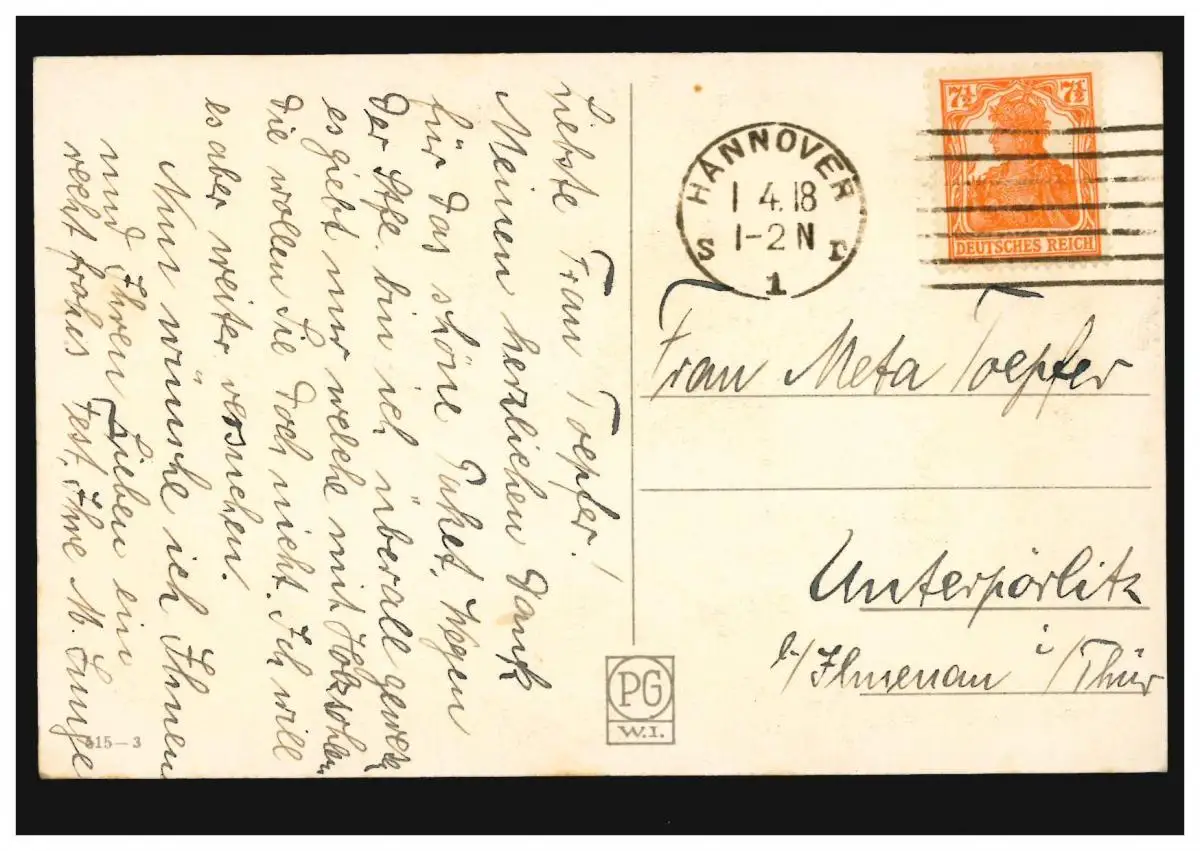 Liebste Frau Toepfer!
Meinen herzlichen Dank
für das schöne Paket. Wegen
der Stfe. bin ich überall gewesen
es giebt nur welche mit Holzsohlen
die wollen Sie doch nicht. Ich will
es aber weiter versuchen.
Nun wünsche ich Ihnen
und Ihren Lieben ein
recht frohes Fest. Ihre M. Junge
415-3
PG
W.I.
HANNOVER
1 4. 18
1-2 N
S
1
7½ 7½
DEUTSCHES REICH
Frau Meta Toepfer
Unterpörlitz
b/Ilmenau i/Thür